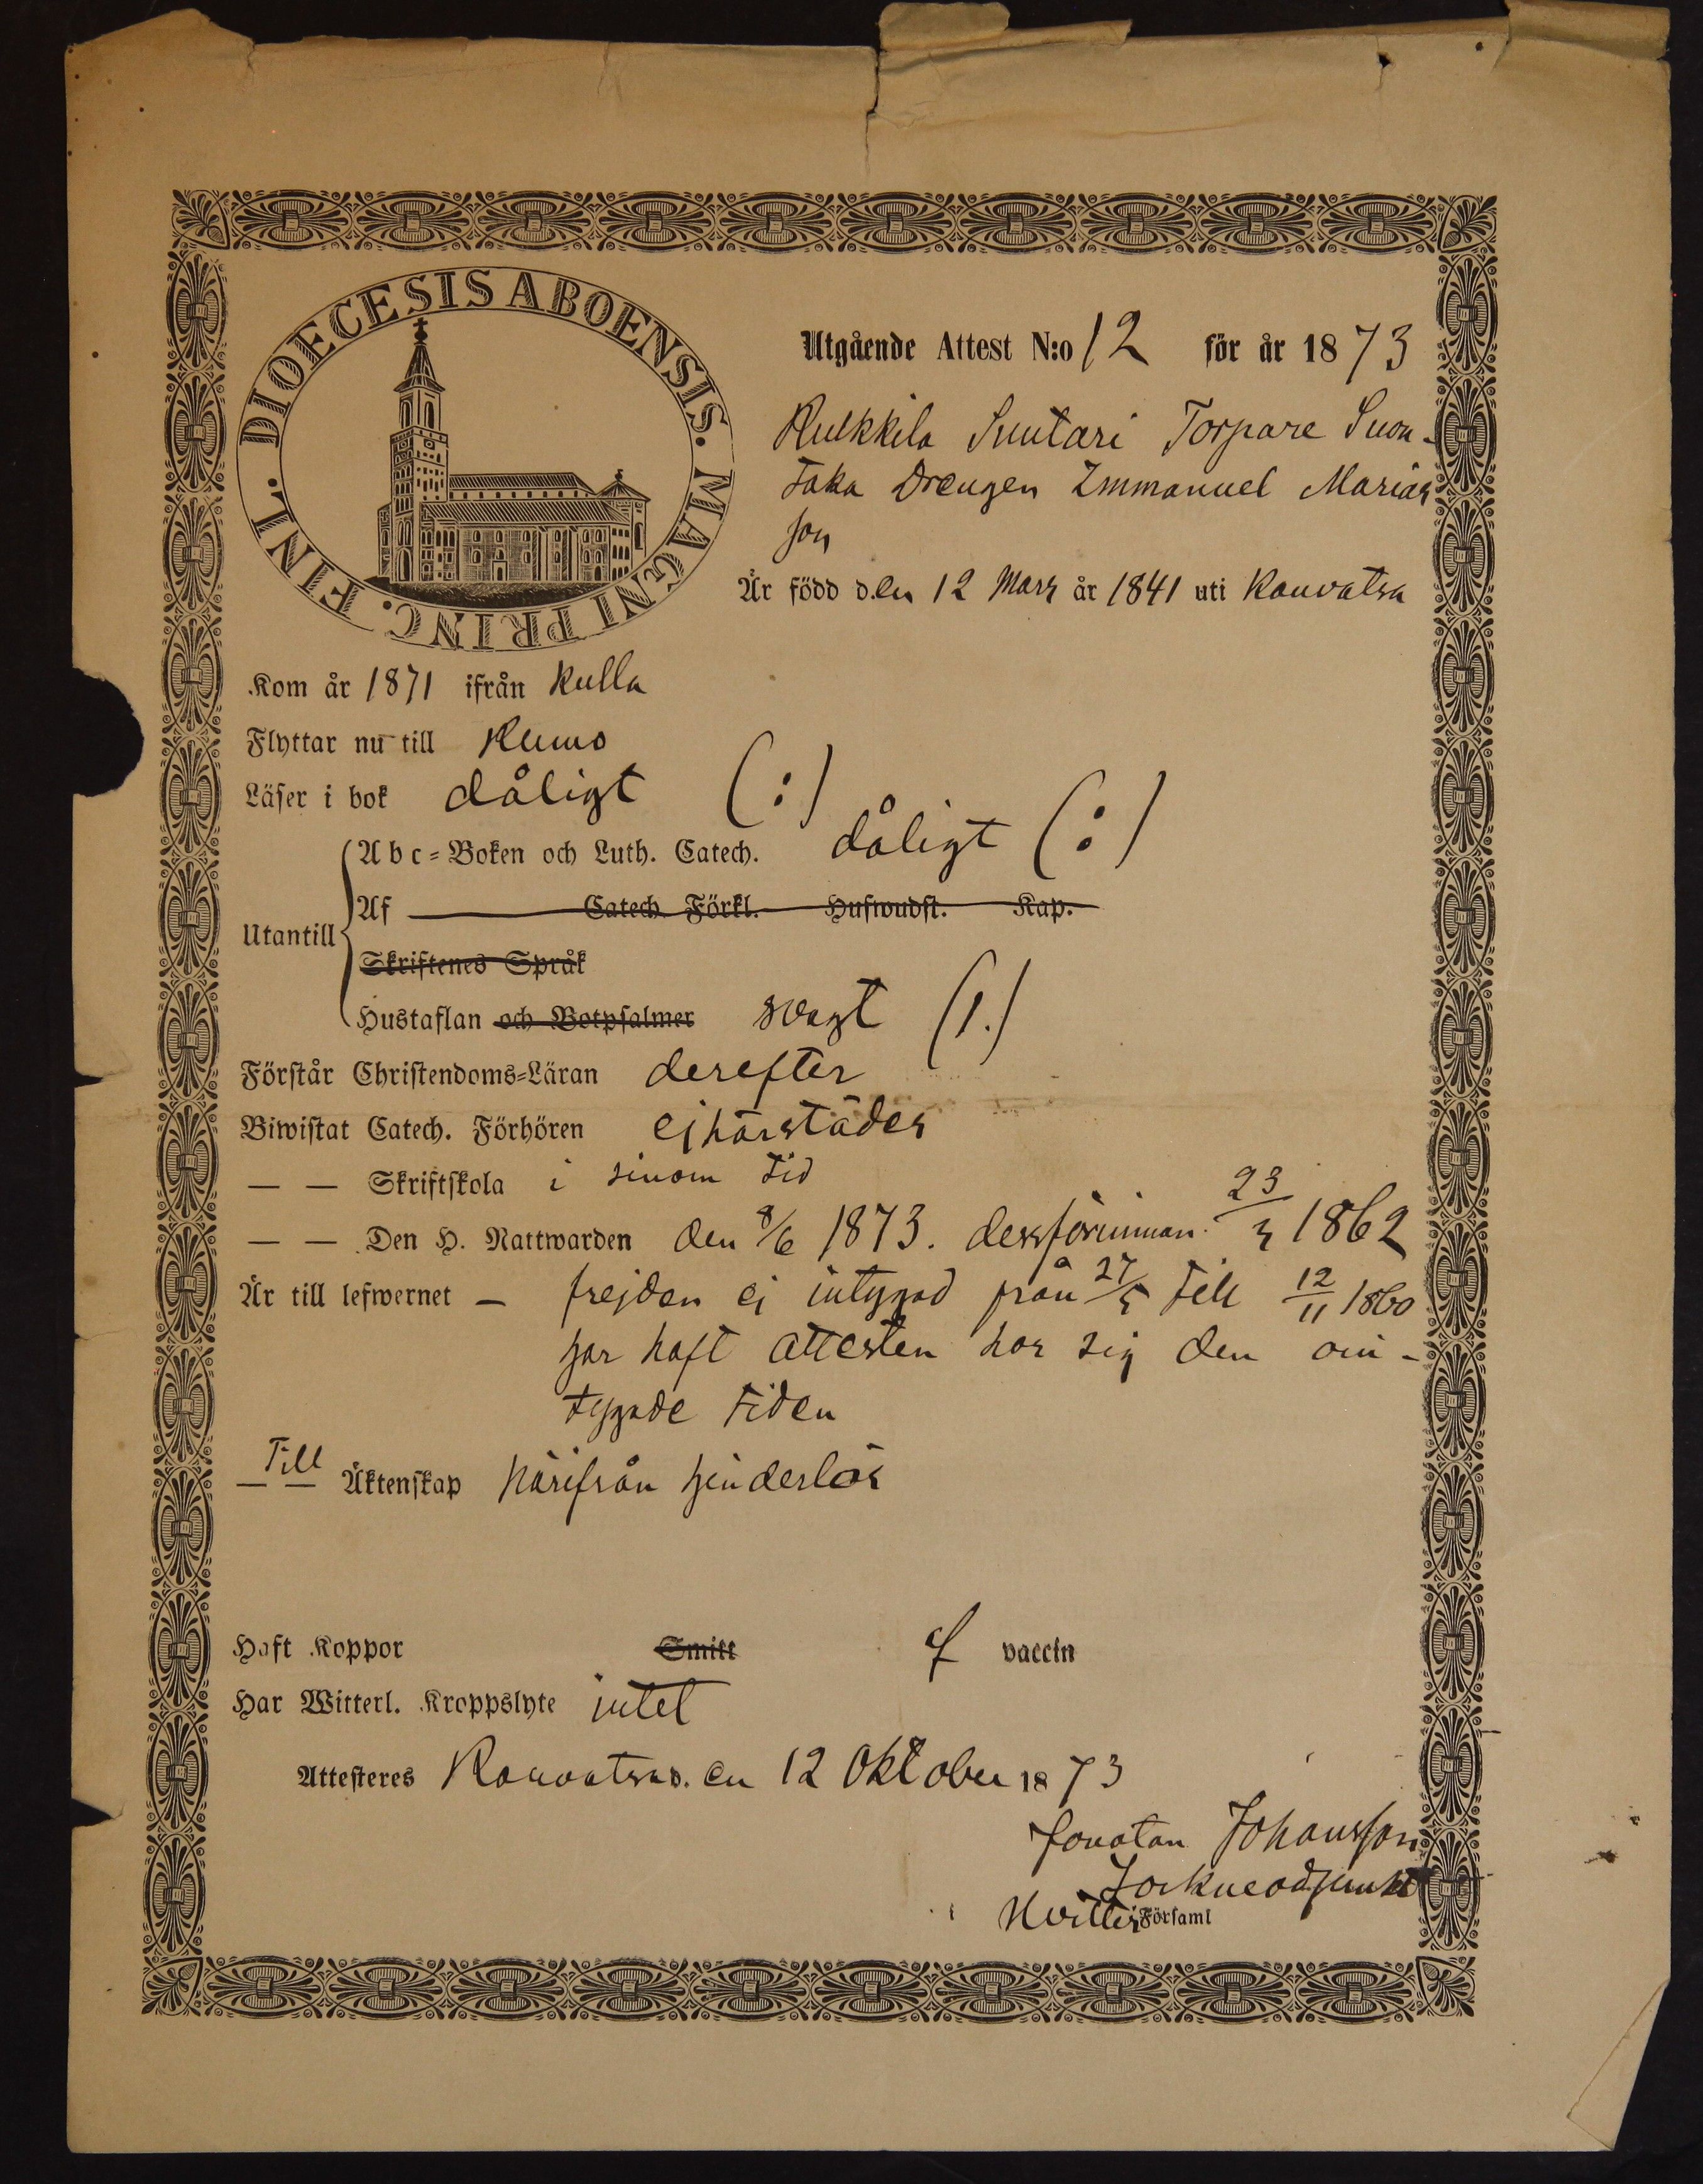 DIOECESIS ABOENSIS. MAGNI PRINC. FINL.
Utgående Attest N:o 12 för år 1873
Kulkkila Suutari Torpare Suon-
taka Drengen Immanuel Marias
son
Är född d.en 12 Mars år 1841 uti Kauvatsa
Kom år 1871 ifrån Kulla
Flyttar nu till Kumo
Läser i bok dåligt (:)
Abc=Boken och Luth. Catech. dåligt (:)
Af Catech. Förkl. Hufwudst. Kap.
Utantill
Skriftenes Språk
Hustaflan och Botpsalmer svagt (1.)
Förstår Christendoms=Läran derefter
Biwistat Catech. Förhören ej härstädes
— — Skriftskola i sinom tid
— — Den H. Nattwarden den 8/6 1873. dessförinnan 23/3 1862
Är till lefwernet — frejden ej intygad från 27/5 till 12/11 1860
har haft attesten hos sig den oin-
tygade tiden
— Till — Äktenskap härifrån hinderlös
Haft Koppor Smitt vaccin
Har Witterl. Kroppslyte intet
Attesteres Kauvatsa d. en 12 Oktober 1873
Jonatan Johansson
Sockneadjunkt
i Hvittis Församl